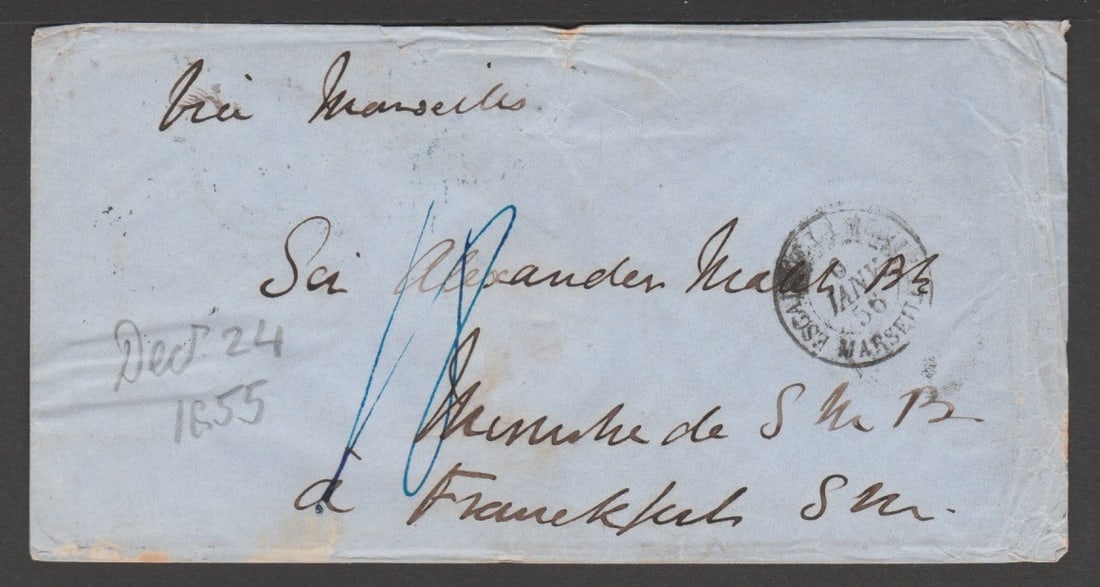 Via Marseilles
Sir Alexander Malet Bt
Ministre de S M B
à Franckfurt S M.
Dec 24
1855
18
JANV
56
MARSEILLE